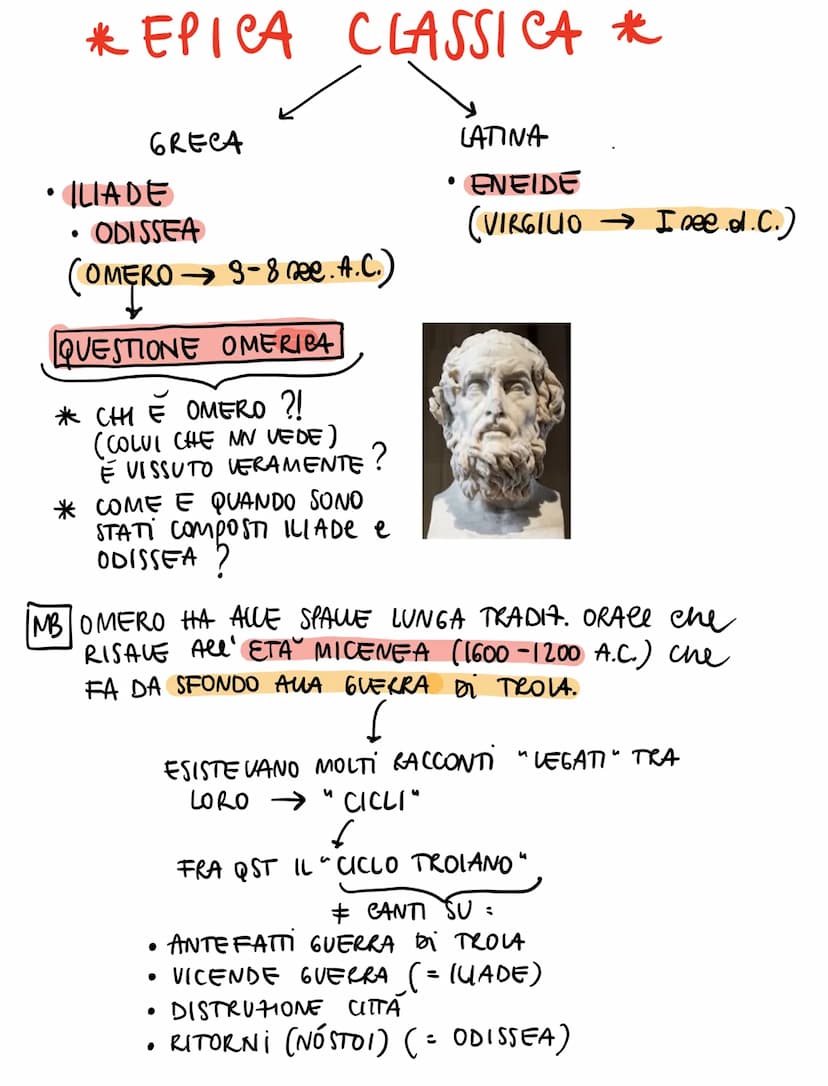 * EPICA CLASSICA *
GRECA
• ILIADE
• ODISSEA
(OMERO → 9-8 sec. A.C.)
LATINA
• ENEIDE
(VIRGILIO → I sec. d.C.)
QUESTIONE OMERICA
* CHI È OMERO ?!
(COLUI CHE NN VEDE)
È VISSUTO VERAMENTE ?
* COME E QUANDO SONO
STATI COMPOSTI ILIADE e
ODISSEA ?
NB OMERO HA ALLE SPALLE LUNGA TRADIZ. ORALE che
RISALE ALL' ETÀ MICENEA (1600-1200 A.C.) che
FA DA SFONDO ALLA GUERRA Di TROIA.
ESISTEVANO MOLTI RACCONTI "LEGATI" TRA
LORO → "CICLI"
FRA QST IL "CICLO TROIANO"
≠ CANTI SU :
• ANTEFATTI GUERRA Di TROIA
• VICENDE GUERRA (= ILIADE)
• DISTRUZIONE CITTÁ
• RITORNI (NÓSTOI) (= ODISSEA)